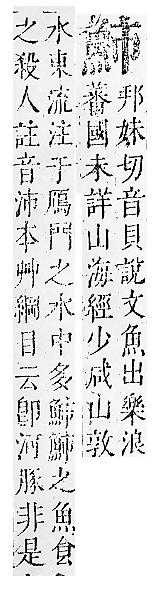 䰽
邦妹切音貝說文魚出樂浪
蕃國未詳山海經少咸山敦
水東流注于鴈門之水中多䰽䰽之魚食
之殺人註音沛本艸綱目云卽河豚非是